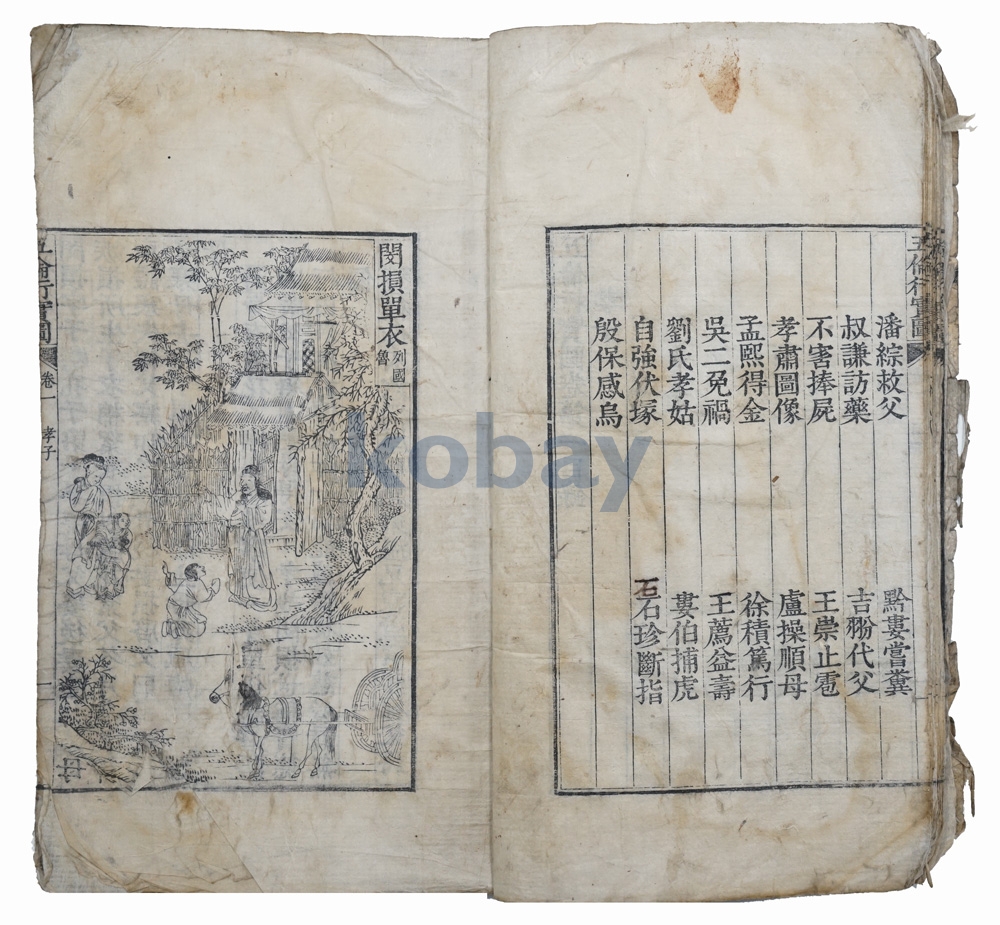 五倫行實圖
潘綜救父 黔婁嘗糞
叔謙訪藥 吉翂代父
不害捧屍 王崇止雹
孝肅圖像 盧操順母
孟熙得金 徐積篤行
吳二免禍 王薦益壽
劉氏孝姑 婁伯捕虎
自強伏塚 石石珍斷指
殷保感烏
閔損單衣 列國魯
五倫行實圖 卷一 孝子 一
kobay